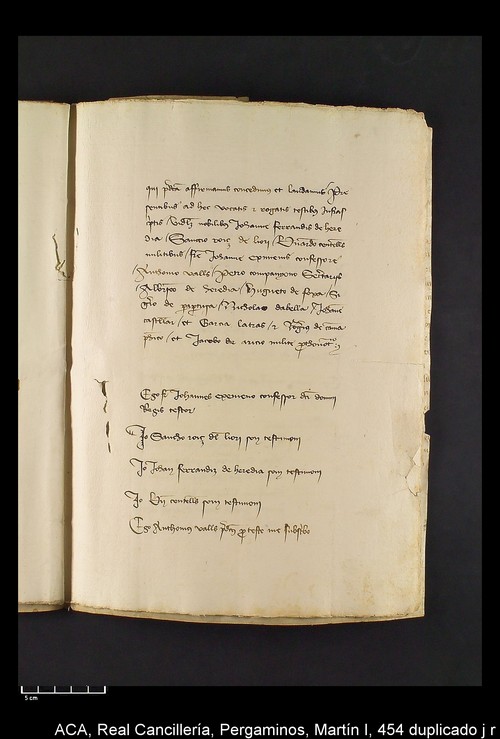 qui p̃dc̃a affirmamus concedimus et laudamus Pre
sentibus ad hec vocatis et rogatis testibus infras
c̃ptis / videlicet nobilibus Johanne ferrandis de here
dia / Sanccio roiç de liori / Berñardo centelles
militibus / fr̃e Johanne exemenis confessore
/ Anthonio valls / Petro companyono Secretariis
/ de heredia / Hugueto de foxa /
de / Nicholao dabella / Johanne
castellar / et Garcia latras / de cama
/ et Jacobo de aricio milite
Ego fr̃ Johannes exemeno confessor dñi domini
Regis testor
Jo Sancho roiç de liori son testimoni
Jo Johan ferrandiz de heredia som testimoni
Jo centelles som testimoni
Ego Anthonius valls p̃dc̃us pro teste me subscribo
5 cm
ACA, Real Cancillería, Pergaminos, Martín I, 454 duplicado j r